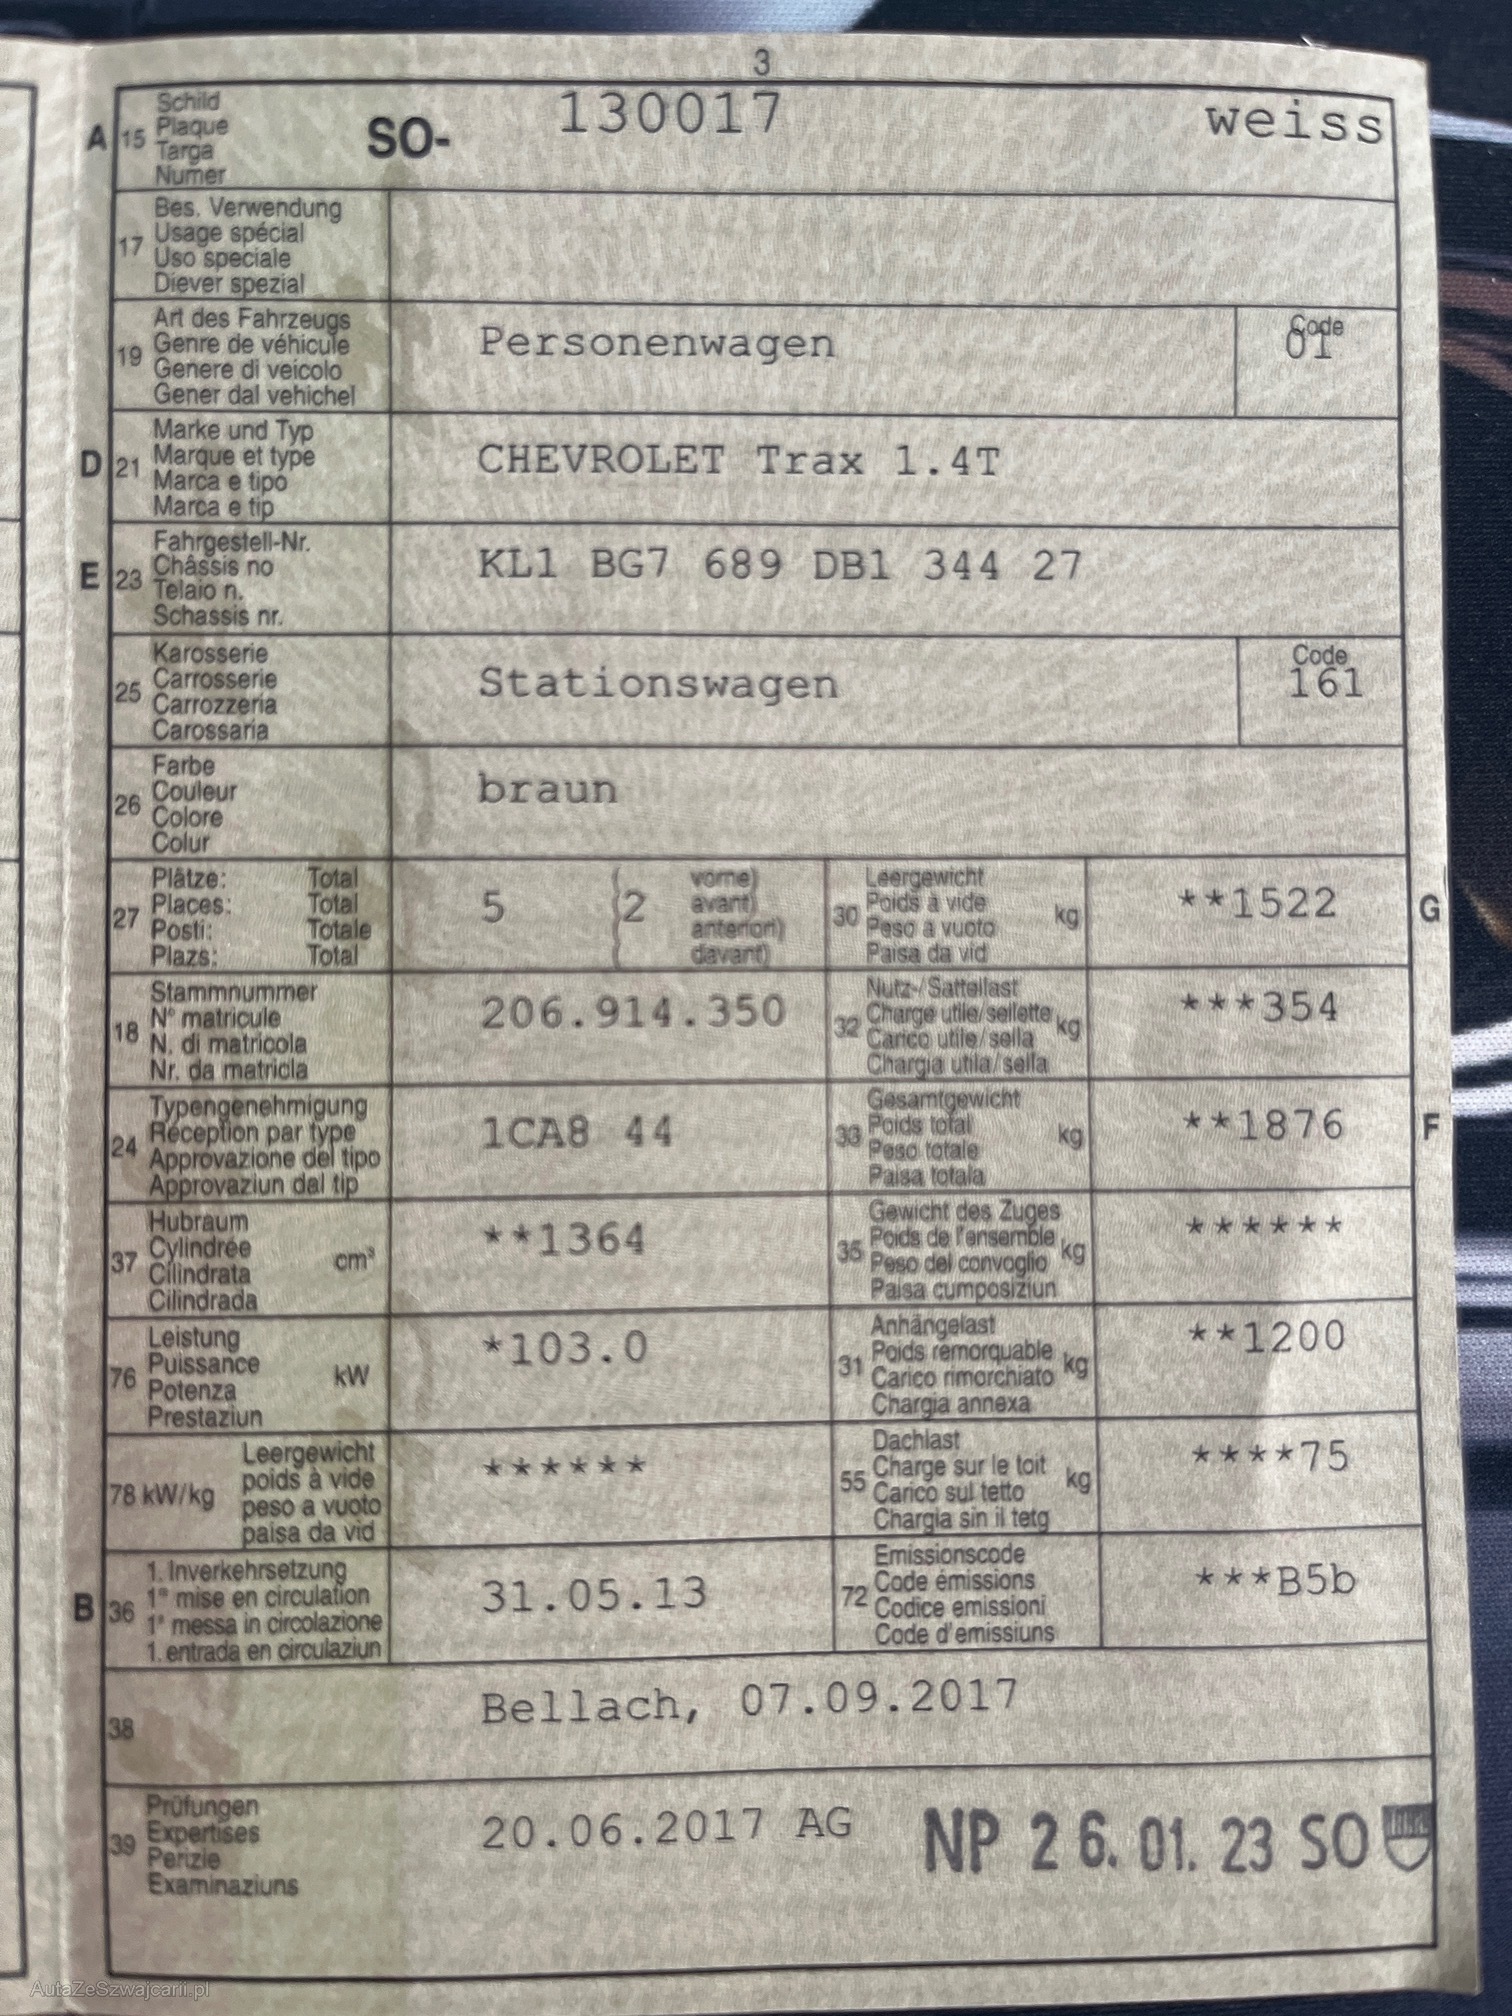 3
A 15 Schild
Plaque
Targa
Numer
SO- 130017 weiss
17 Bes. Verwendung
Usage spécial
Uso speciale
Diever spezial
19 Art des Fahrzeugs
Genre de véhicule
Genere di veicolo
Gener dal vehichel
Personenwagen
Code
01
D 21 Marke und Typ
Marque et type
Marca e tipo
Marca e tip
CHEVROLET Trax 1.4T
E 23 Fahrgestell-Nr.
Châssis no
Telaio n.
Schassis nr.
KL1 BG7 689 DB1 344 27
25 Karosserie
Carrosserie
Carrozzeria
Carossaria
Stationswagen
Code
161
26 Farbe
Couleur
Colore
Colur
braun
27 Plätze: Total
Places: Total
Posti: Totale
Plazs: Total
5 (2 vorne)
avant)
anteriori)
davant)
30 Leergewicht
Poids à vide
Peso a vuoto
Paisa da vid
kg
**1522
G
18 Stammnummer
N° matricule
N. di matricola
Nr. da matricla
206.914.350
32 Nutz-/Sattellast
Charge utile/sellette
Carico utile/sella
Chargia utila/sella
kg
***354
24 Typengenehmigung
Réception par type
Approvazione del tipo
Approvaziun dal tip
1CA8 44
33 Gesamtgewicht
Poids total
Peso totale
Paisa totala
kg
**1876
F
37 Hubraum
Cylindrée
Cilindrata
Cilindrada
cm³
**1364
35 Gewicht des Zuges
Poids de l'ensemble
Peso del convoglio
Paisa cumposiziun
kg
******
76 Leistung
Puissance
Potenza
Prestaziun
kW
*103.0
31 Anhängelast
Poids remorquable
Carico rimorchiato
Chargia annexa
kg
**1200
78 kW/kg Leergewicht
poids à vide
peso a vuoto
paisa da vid
******
55 Dachlast
Charge sur le toit
Carico sul tetto
Chargia sin il tetg
kg
****75
B 36 1. Inverkehrsetzung
1re mise en circulation
1a messa in circolazione
1. entrada en circulaziun
31.05.13
72 Emissionscode
Code émissions
Codice emissioni
Code d'emissiuns
***B5b
38 Bellach, 07.09.2017
39 Prüfungen
Expertises
Perizie
Examinaziuns
20.06.2017 AG
NP 26. 01. 23 SO
AutaZeSzwajcarii.pl